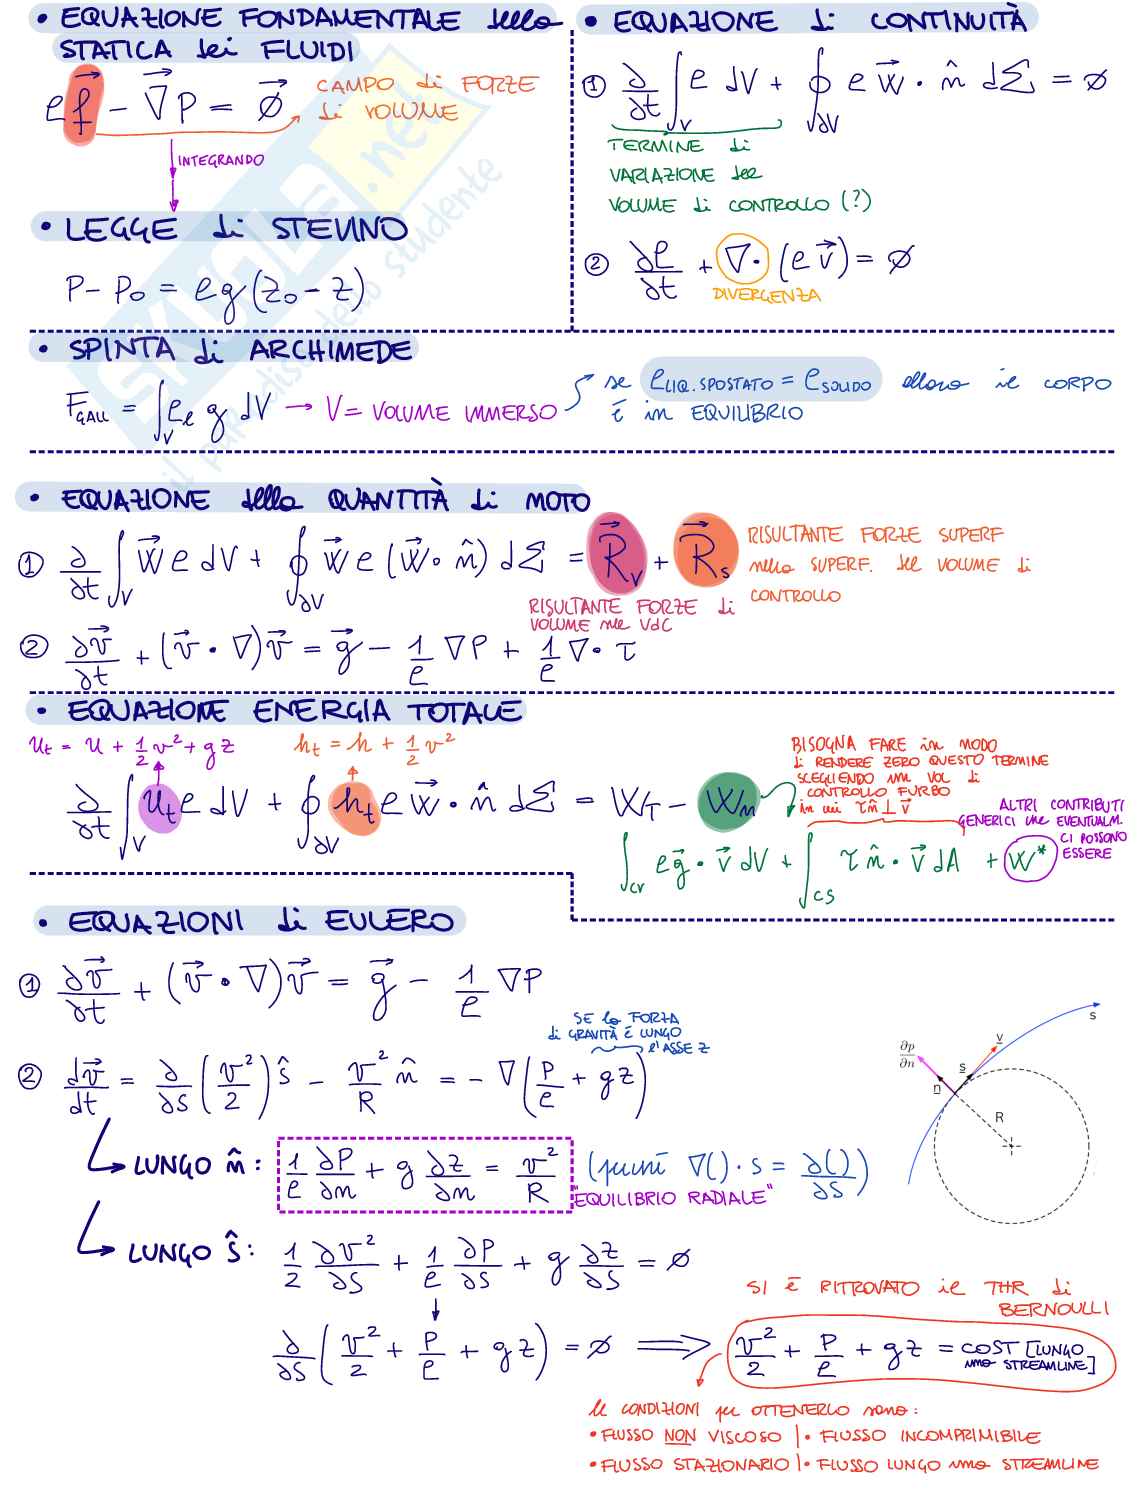 • EQUAZIONE FONDAMENTALE della
STATICA dei FLUIDI
ρf⃗ − ∇⃗P = ∅⃗
CAMPO di FORZE
di VOLUME
INTEGRANDO
• LEGGE di STEVINO
P − P₀ = ρg(z₀ − z)
• EQUAZIONE di CONTINUITÀ
① ∂/∂t ∫_V ρ dV + ∮_∂V ρ w⃗ · n̂ dΣ = ∅
TERMINE di
VARIAZIONE del
VOLUME di CONTROLLO (?)
② ∂ρ/∂t + ∇· (ρ v⃗) = ∅
DIVERGENZA
• SPINTA di ARCHIMEDE
F_GALL = ∫_V ρ_l g dV → V = VOLUME IMMERSO
se ρ_LIQ. SPOSTATO = ρ_SOLIDO allora il CORPO
È in EQUILIBRIO
• EQUAZIONE della QUANTITÀ di MOTO
① ∂/∂t ∫_V w⃗ ρ dV + ∮_∂V w⃗ ρ (w⃗ · n̂) dΣ = R⃗_V + R⃗_S
RISULTANTE FORZE SUPERF
nella SUPERF. del VOLUME di
CONTROLLO
RISULTANTE FORZE di
VOLUME nel VdC
② ∂v⃗/∂t + (v⃗ · ∇)v⃗ = g⃗ − 1/ρ ∇P + 1/ρ ∇· τ
• EQUAZIONE ENERGIA TOTALE
u_t = u + 1/2 v² + gz
h_t = h + 1/2 v²
∂/∂t ∫_V u_t ρ dV + ∮_∂V h_t ρ w⃗ · n̂ dΣ = W_T − W_m
BISOGNA FARE in MODO
di RENDERE ZERO QUESTO TERMINE
SCEGLIENDO un VOL di
CONTROLLO FURBO
in cui τn̂ ⊥ v⃗
ALTRI CONTRIBUTI
GENERICI che EVENTUALM.
CI POSSONO
ESSERE
∫_CV ρg⃗ · v⃗ dV + ∫_CS τ n̂ · v⃗ dA + W*
• EQUAZIONI di EULERO
① ∂v⃗/∂t + (v⃗ · ∇)v⃗ = g⃗ − 1/ρ ∇P
SE la FORZA
di GRAVITÀ È LUNGO
l'ASSE z
② dv⃗/dt = ∂/∂s (v²/2) ŝ − v²/R n̂ = − ∇(P/ρ + gz)
LUNGO n̂: 1/ρ ∂P/∂n + g ∂z/∂n = v²/R
(poiché ∇() · s = ∂()/∂s)
"EQUILIBRIO RADIALE"
LUNGO ŝ: 1/2 ∂v²/∂s + 1/ρ ∂P/∂s + g ∂z/∂s = ∅
∂/∂s (v²/2 + P/ρ + gz) = ∅ ⟹ v²/2 + P/ρ + gz = COST [LUNGO
una STREAMLINE]
SI È RITROVATO il THR di
BERNOULLI
le CONDIZIONI per OTTENERLO sono:
• FLUSSO NON VISCOSO | • FLUSSO INCOMPRIMIBILE
• FLUSSO STAZIONARIO | • FLUSSO LUNGO una STREAMLINE
s
v
∂p/∂n
s
n
R
SKUOLA.net
il paradiso dello studente